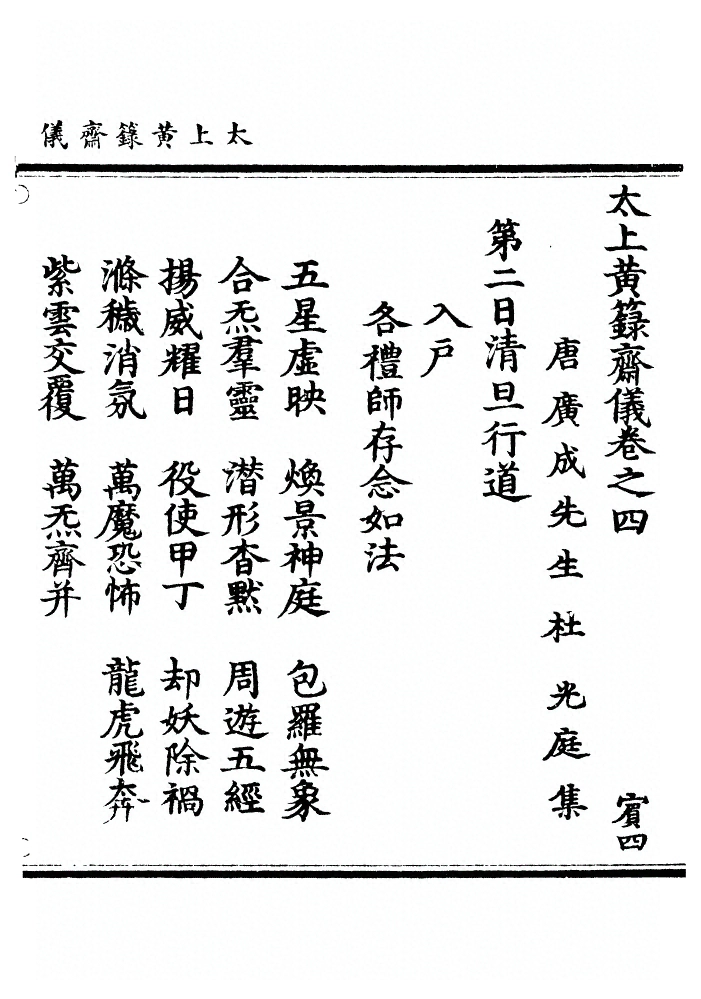 太上黃籙齋儀
太上黃籙齋儀卷之四　賓四
唐廣成先生杜光庭集
第二日清旦行道
入戶
各禮師存念如法
五星虛映　煥景神庭　包羅無象
合炁羣靈　潛形杳默　周遊五經
揚威耀日　役使甲丁　却妖除禍
滌穢消氛　萬魔恐怖　龍虎飛奔
紫雲交覆　萬炁齊并